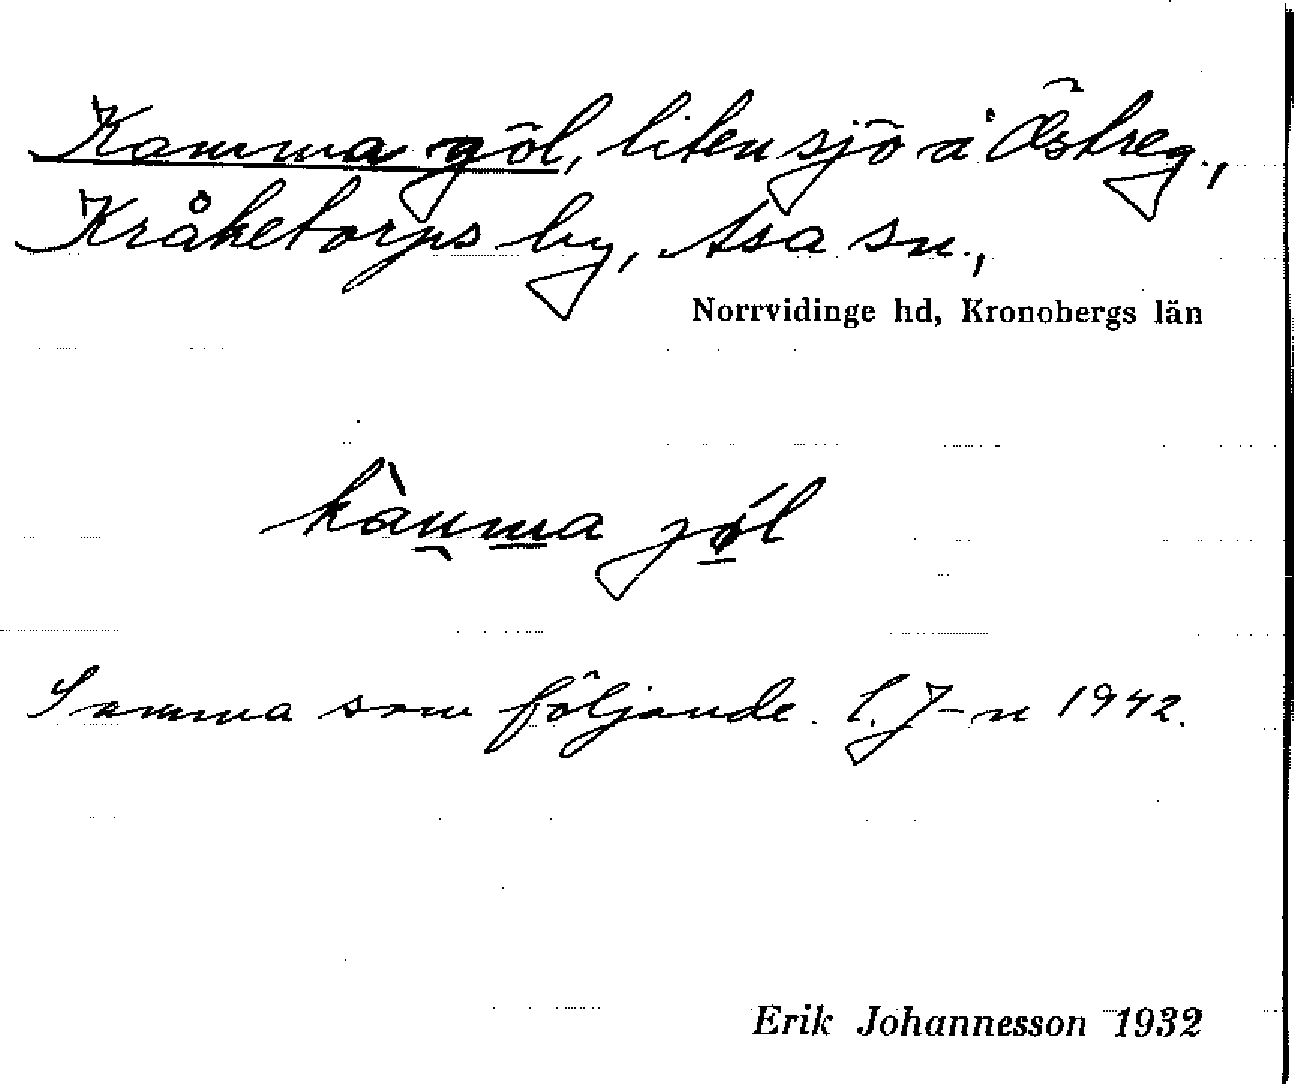 Kamma göl, liten sjö å Östreg.,
Kråketorps by, Asa sn.,
Norrvidinge hd, Kronobergs län
kamma jöl
Samma som följande. E. J-n 1942.
Erik Johannesson 1932